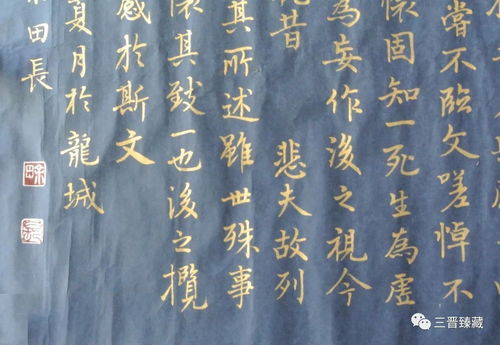 嘗不臨文嗟悼不
懷固知一死生為虛
為妄作後之視今
昔 悲夫故列
其所述雖世殊事
懷其致一也後之攬
感於斯文
夏月於龍城
田長
三晋臻藏